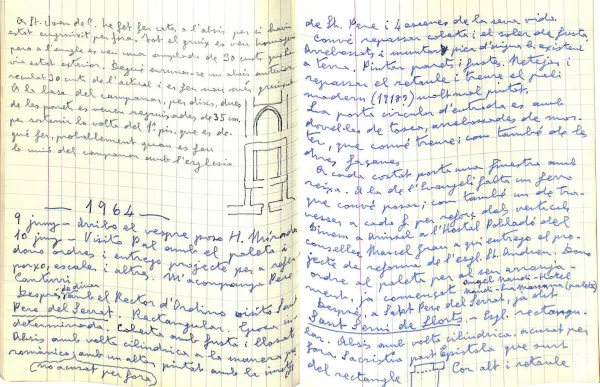 A St. Joan de C. he fet fer cata, a l'absis per si havia
estat engruixit per fora. Tot el gruix es veu homogeni
pero a l'angle es veu una amplada de 30 cmts. que
via estat exterior. Degui enrunar-se un absis anterior
reculat 30 cmts de l'actual i es feu nou més gruixut
A la base del campanar, per dins, dues
de les parets es veuen regruixades de 35 cm,
per sostenir la volta del 1r pis, que es de-
gué fer, probablement quan es feu
la unió del campanar amb l'esglesia
— 1964 —
9 juny — Arribo el vespre poso H. Mirador
10 juny — Visito Pal amb el paleta i
dono ordres i entrego projecte per a refer
porxo, escales i altres. M'acompanya Pere
Canturri.
Després amb el Rector d'Ordino visito Sant
Pere del Serrat. Rectangular. Epoca in-
determinada. Coberta amb fusta i llosat
Absis amb volta cilindrica a la manera
romànica, amb un altar pintat amb la imatge
(no acusat per fora)
de St. Pere i 4 escenes de la seva vida.
Convé repassar coberta i el soler de fusta
Arrebossats, i muntar pica d'aigua b. existent
a terra. Pintar parets i fustes. Netejar i
repassar el retaule i treure el pali
modern (1918?) molt mal pintat.
La porta circular d'entrada es amb
dovelles de tosca, arrebossades de mor-
ter, que convé treure; com també de les
altres façanes
A cada costat porta una finestra amb
reixa. A la de l'Evangeli falta un ferro
que convé posar; com també un de tra-
vesser a cada f. per reforç dels verticals
Dinem a Arinsal a l'Hostel Poblado del
conseller Marcel Grau a qui entrego el pro-
jecte de reforma de l'esgl. St. Andreu. Dono
ordre al paleta per al seu arranja-
ment, ja començat
Després, a Sant Pere del Serrat, ja dit
Sant Serni de Llorts — Esgl. rectangu-
lar. Absis amb volta cilindrica. acusat per
fora. Sacristia part Epistola que surt
del rectangle Cor alt i retaule